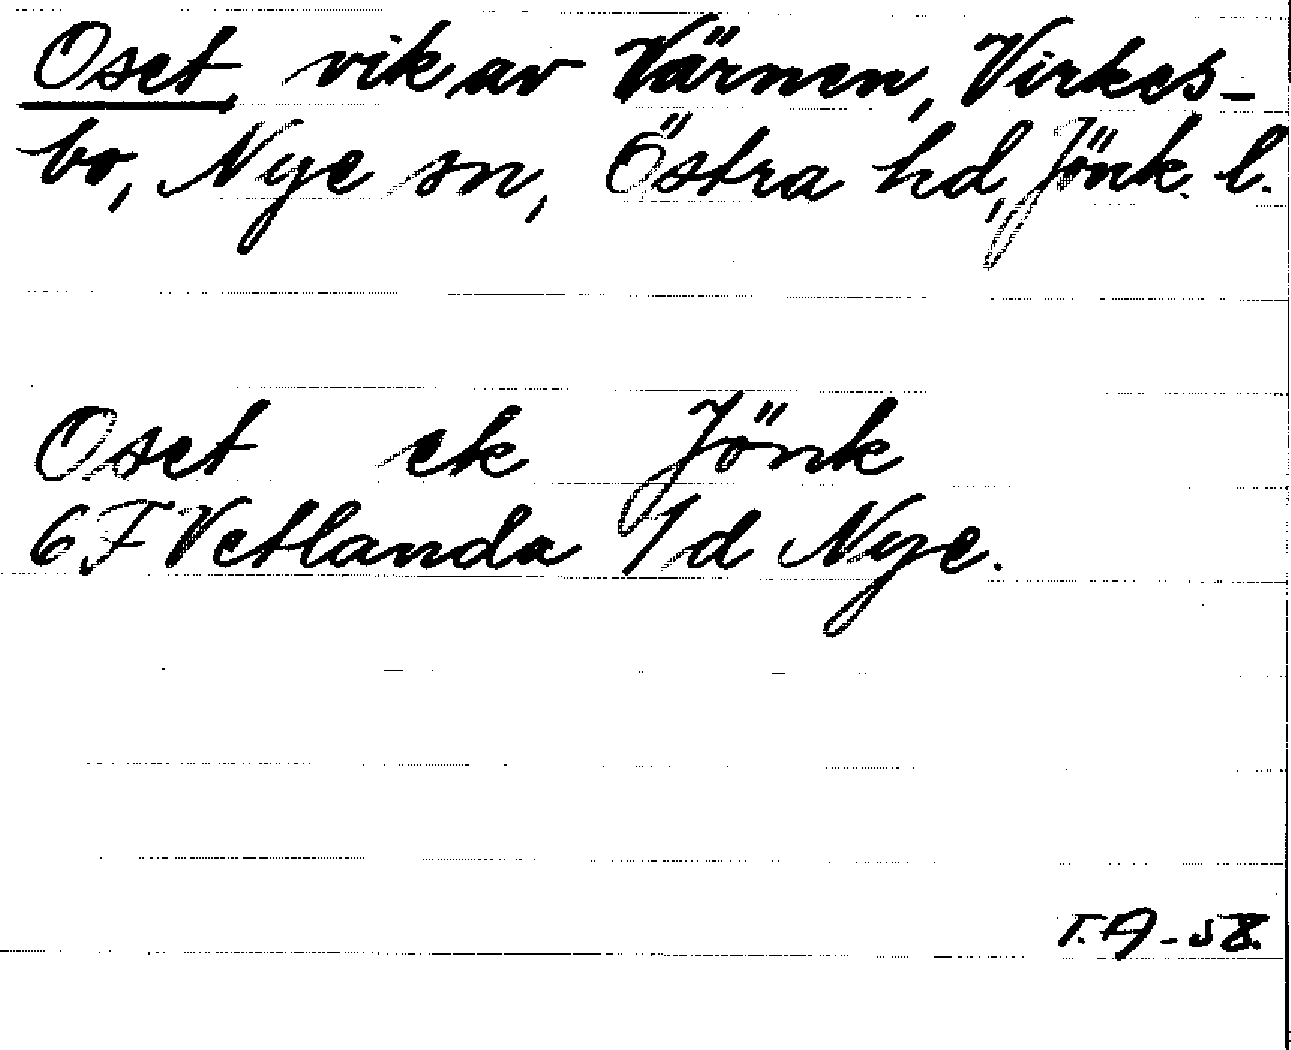 Oset, vik av Värnen, Virkes-
bo, Nye sn, Östra hd, Jönk. l.
Oset ek Jönk
6F Vetlanda 1d Nye.
T.A-58.